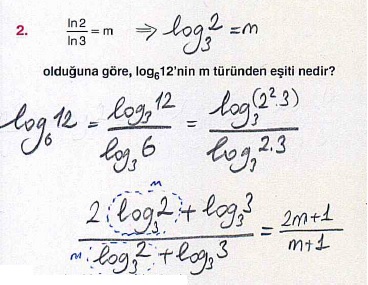 2. ln2/ln3 = m ⇒ log₃2 = m
olduğuna göre, log₆12'nin m türünden eşiti nedir?
log₆12 = log₃12 / log₃6 = log₃(2².3) / log₃2.3
m
2 log₃2 + log₃3 / m log₃2 + log₃3 = 2m+1 / m+1